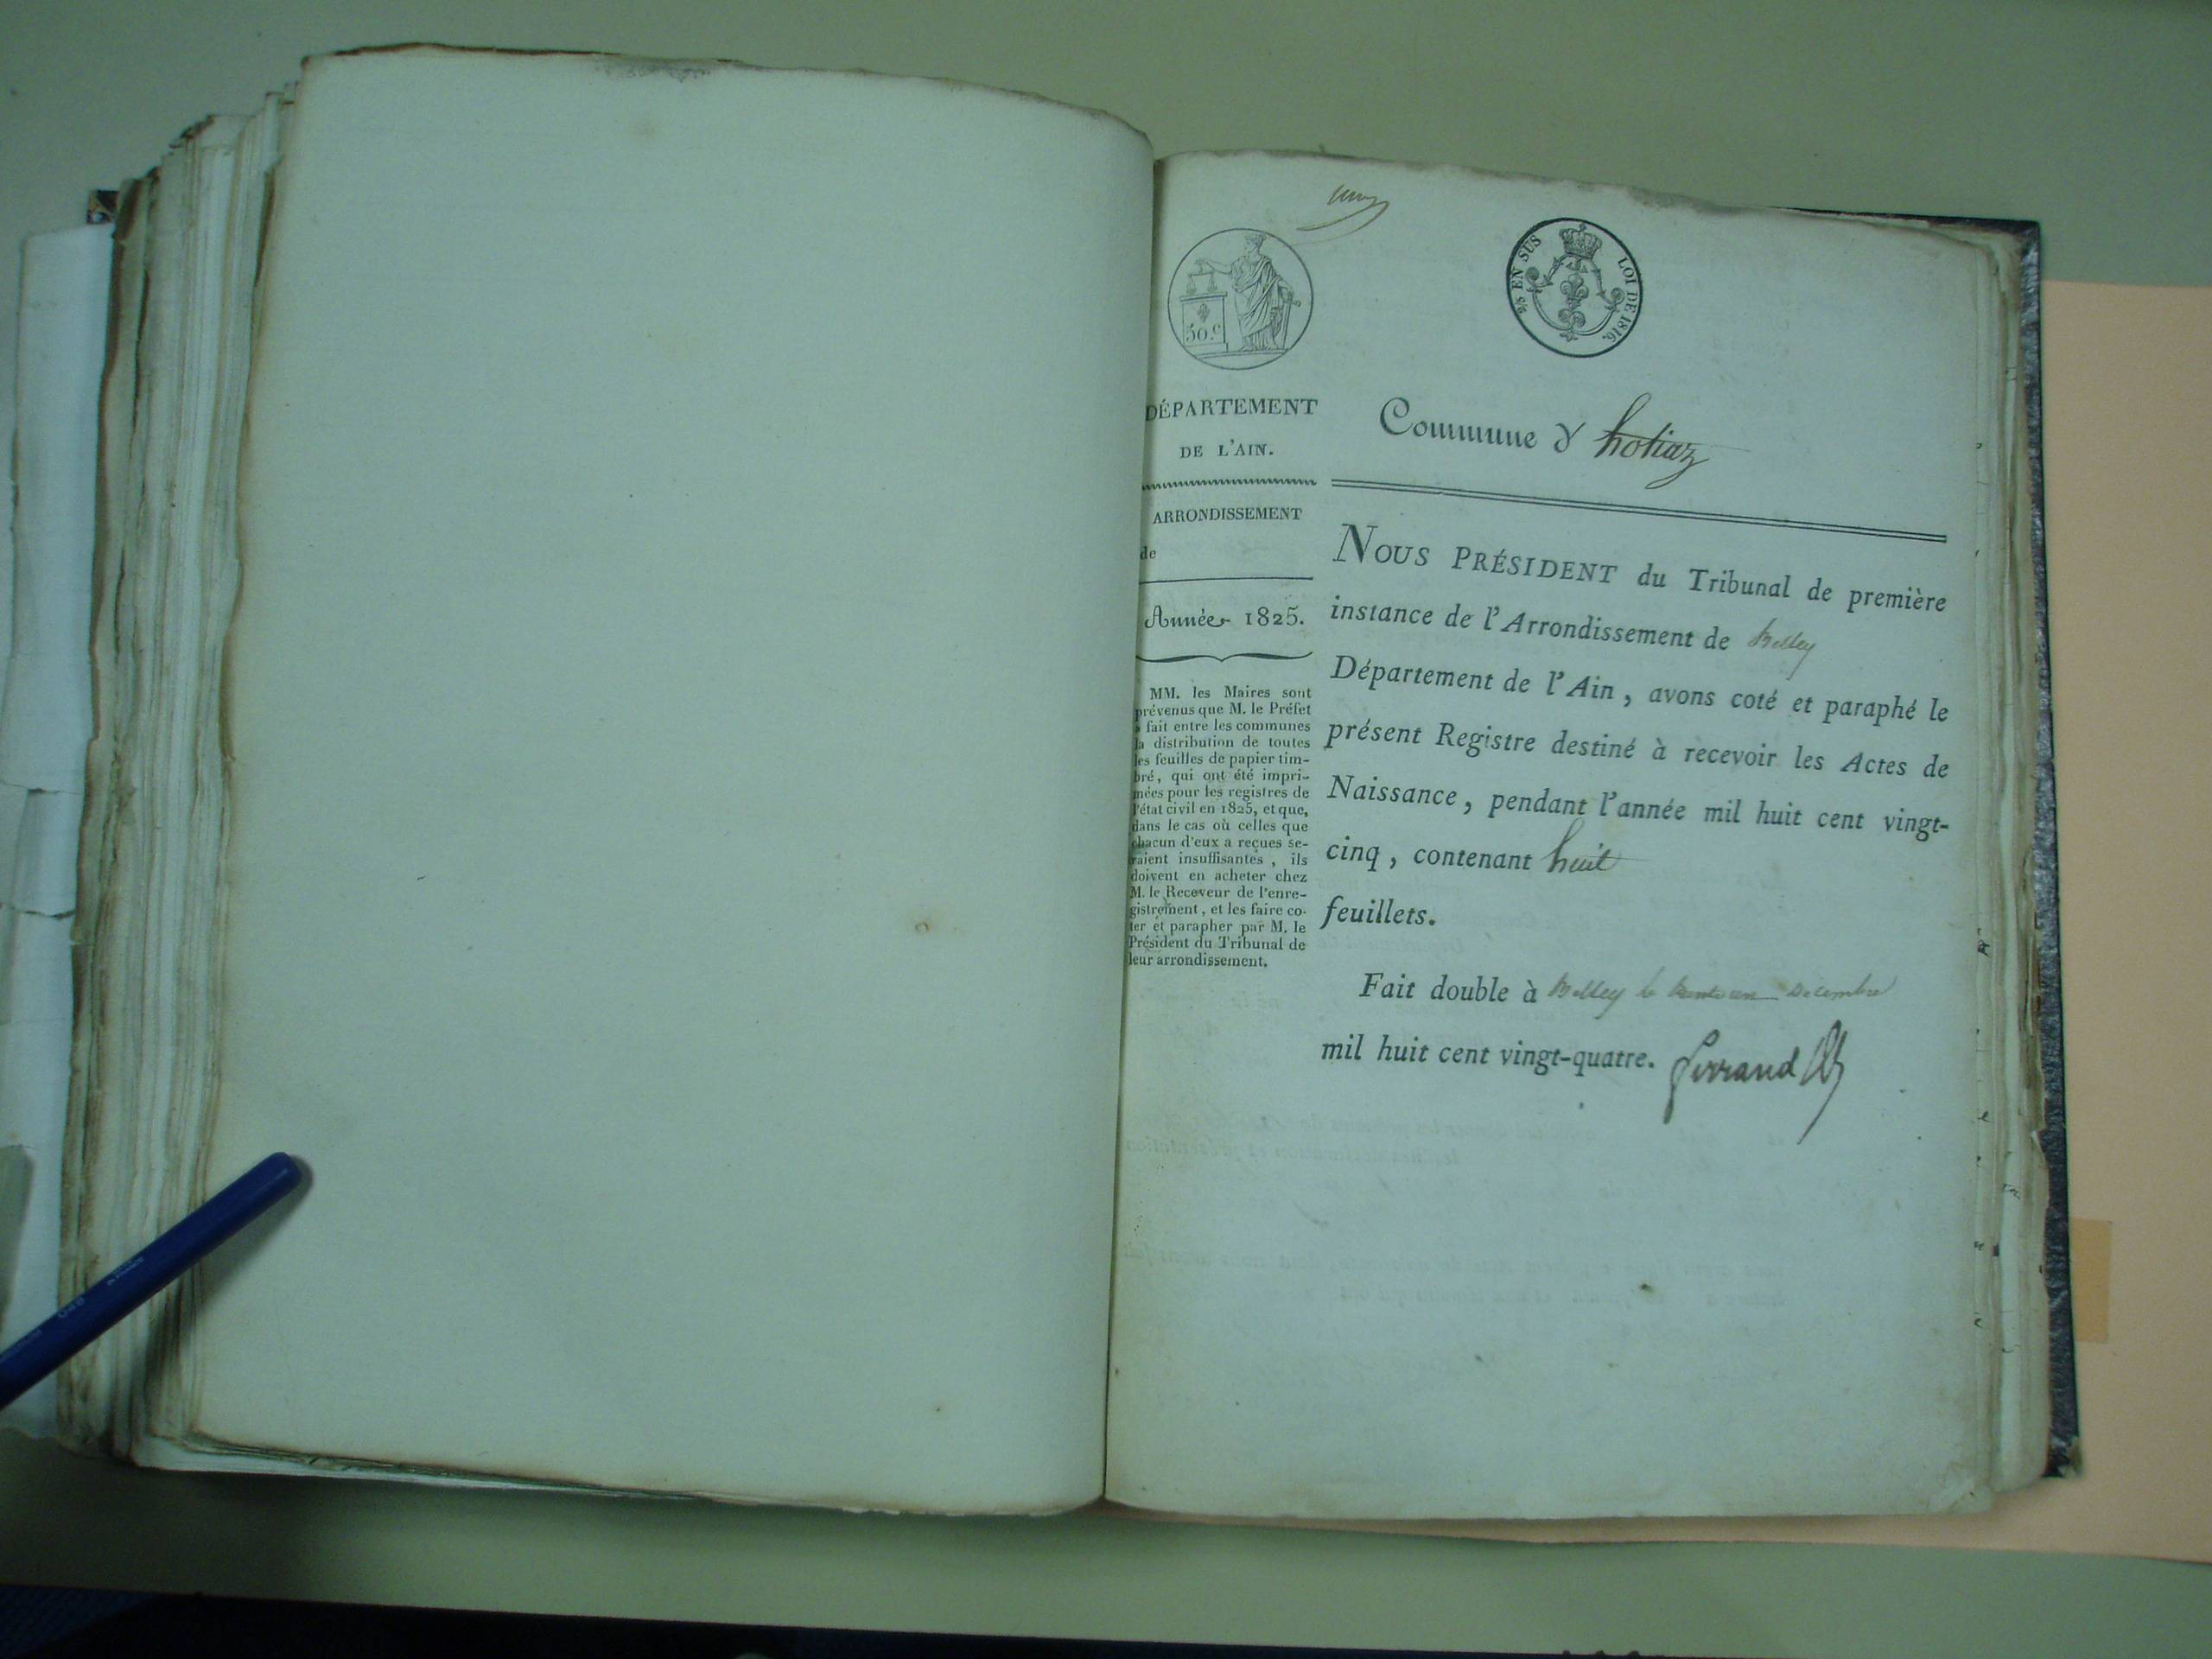 50.c
2/5 EN SUS
LOI DE 1816.
DÉPARTEMENT
DE L'AIN.
ARRONDISSEMENT
de
Année 1825.
MM. les Maires sont
prévenus que M. le Préfet
a fait entre les communes
la distribution de toutes
les feuilles de papier tim-
bré, qui ont été impri-
mées pour les registres de
l'état civil en 1825, et que,
dans le cas où celles que
chacun d'eux a reçues se-
raient insuffisantes, ils
doivent en acheter chez
M. le Receveur de l'enre-
gistrement, et les faire co-
ter et parapher par M. le
Président du Tribunal de
leur arrondissement.
Commune d' hotiaz
NOUS PRÉSIDENT du Tribunal de première
instance de l'Arrondissement de Belley
Département de l'Ain, avons coté et paraphé le
présent Registre destiné à recevoir les Actes de
Naissance, pendant l'année mil huit cent vingt-
cinq, contenant huit
feuillets.
Fait double à Belley le trente un Decembre
mil huit cent vingt-quatre. ferrand